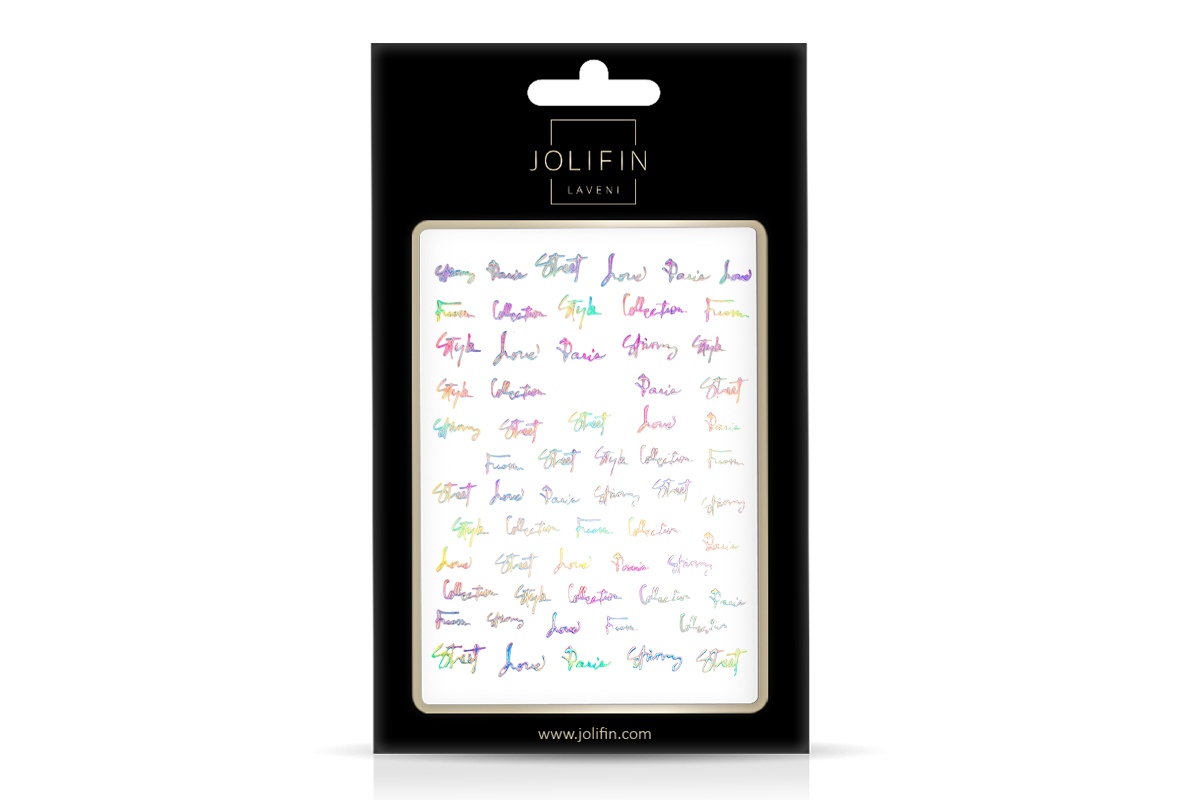 JOLIFIN
LAVENI
Strong Paris Street Love Paris Love
Collection Style Collection
Style Love Paris Strong Style
Style Collection Paris Street
Strong Street Street Love Paris
Street Style Collection
Street Love Paris Strong Street Strong
Style Collection Collection
Paris
Love Street Love Paris Strong
Collection Style Collection Collection Paris
Strong Love Collection
Street Love Paris Strong Street
www.jolifin.com